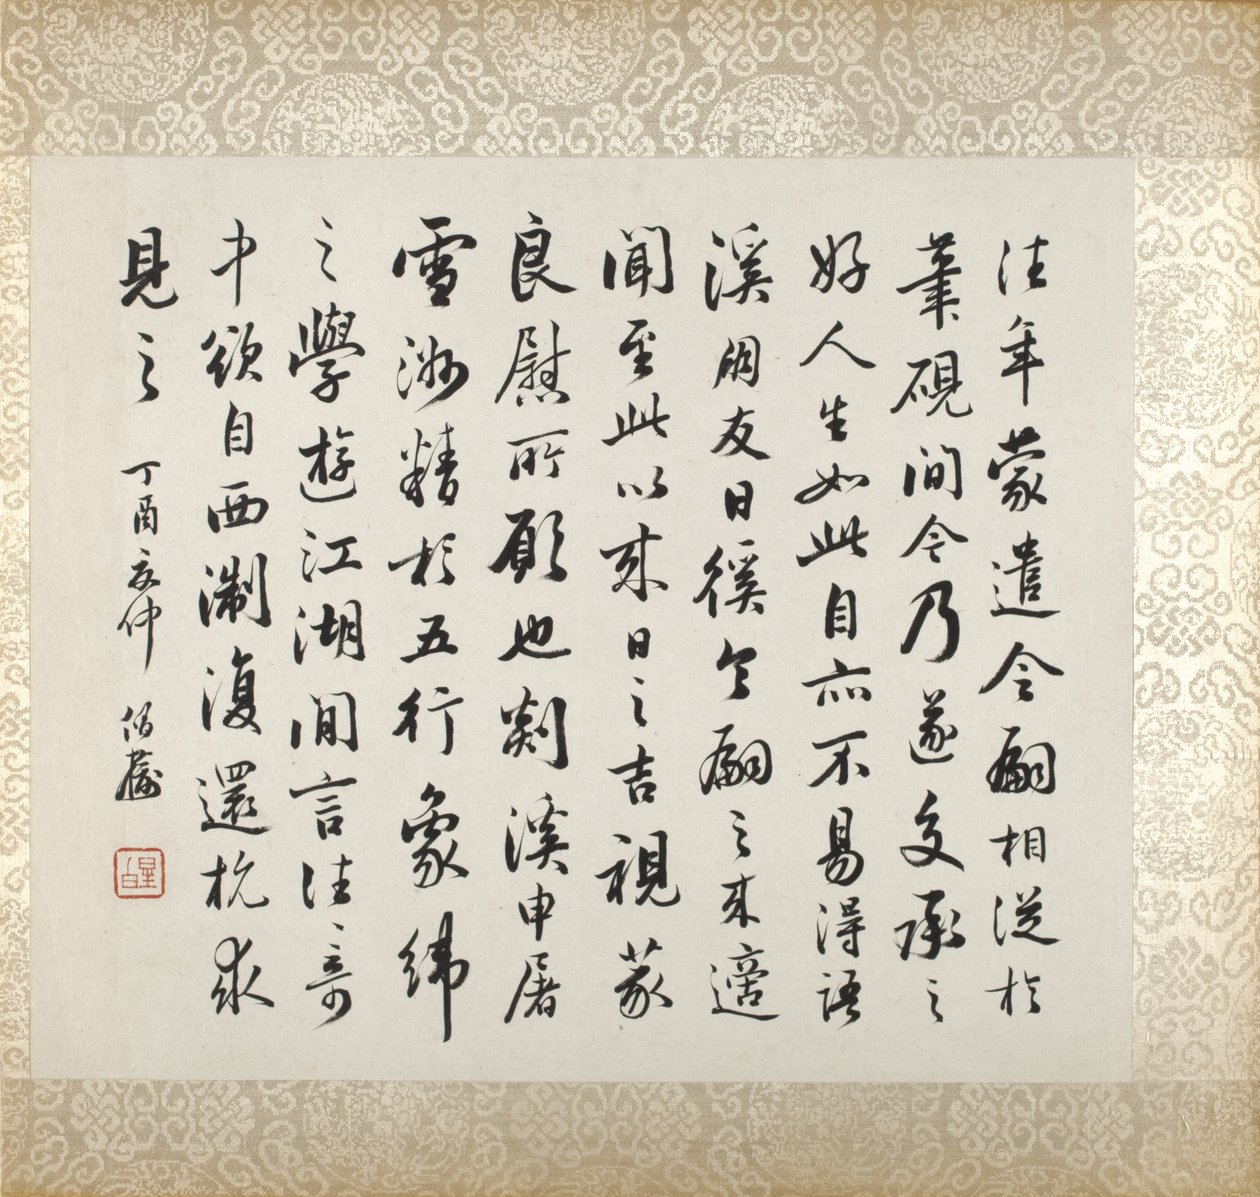 往年蒙遣令嗣相從於
筆硯間今乃遂交承之
好人生如此自亦不易得語
溪朋友日徯令嗣之來適
聞至此以來日之吉視篆
良慰所願也剡溪申屠
雪洲精於五行象緯
之學遊江湖間言往〻奇
中欲自西淛復還杭求
見之
丁酉夏仲